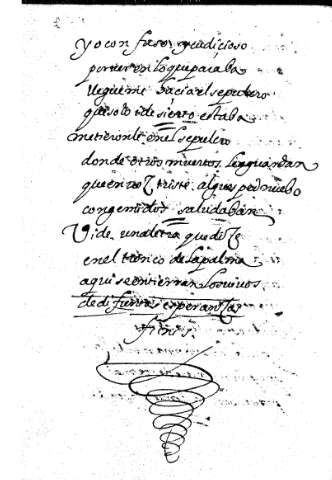 yo con furor y cudicioso
por ver en lo que paraba
llegueme hacia el sepulcro
que solo i desierto estaba
metieronle en el sepulcro
donde otros muertos le aguardan
que en voz triste al guesped nuebo
con gemidos saludaban
Vide una letra que dize
en el tronco de la palma
aqui se entierran los vivos
de difuntas esperanzas
finis.